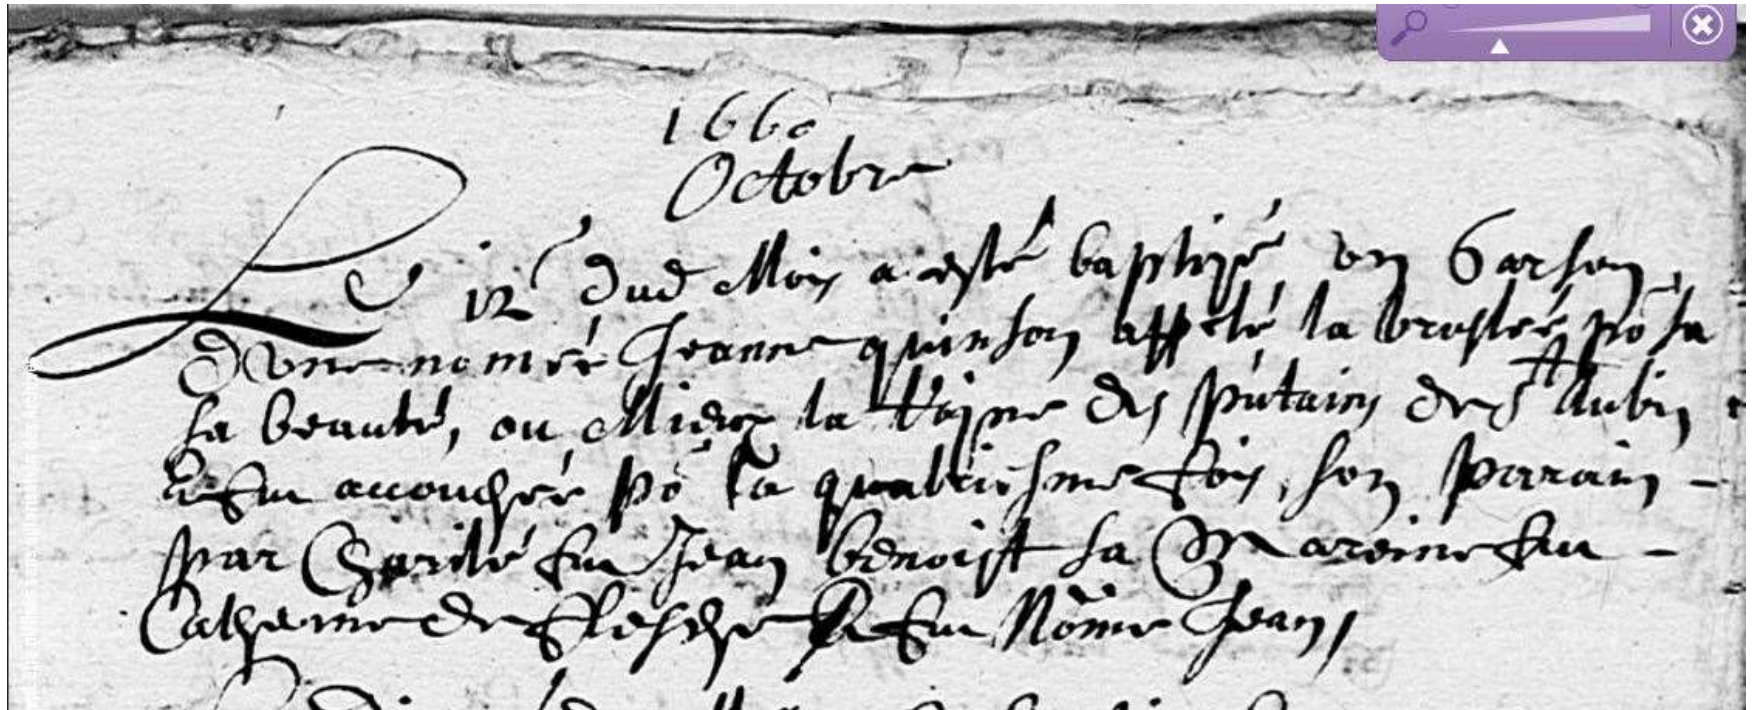 1660
Octobre
Le 12e dud Mois a esté baptizé un Garson
d'une nomée Jeanne quinson appelé la bruslée po sa
sa beauté, ou Mieux la Roine des putains de St Aubin
accouchée po la quatriesme fois, son parain -
par Charité fut Jean benoist sa Mareine fut -
Catherine de flesche & fut Nomé Jean,